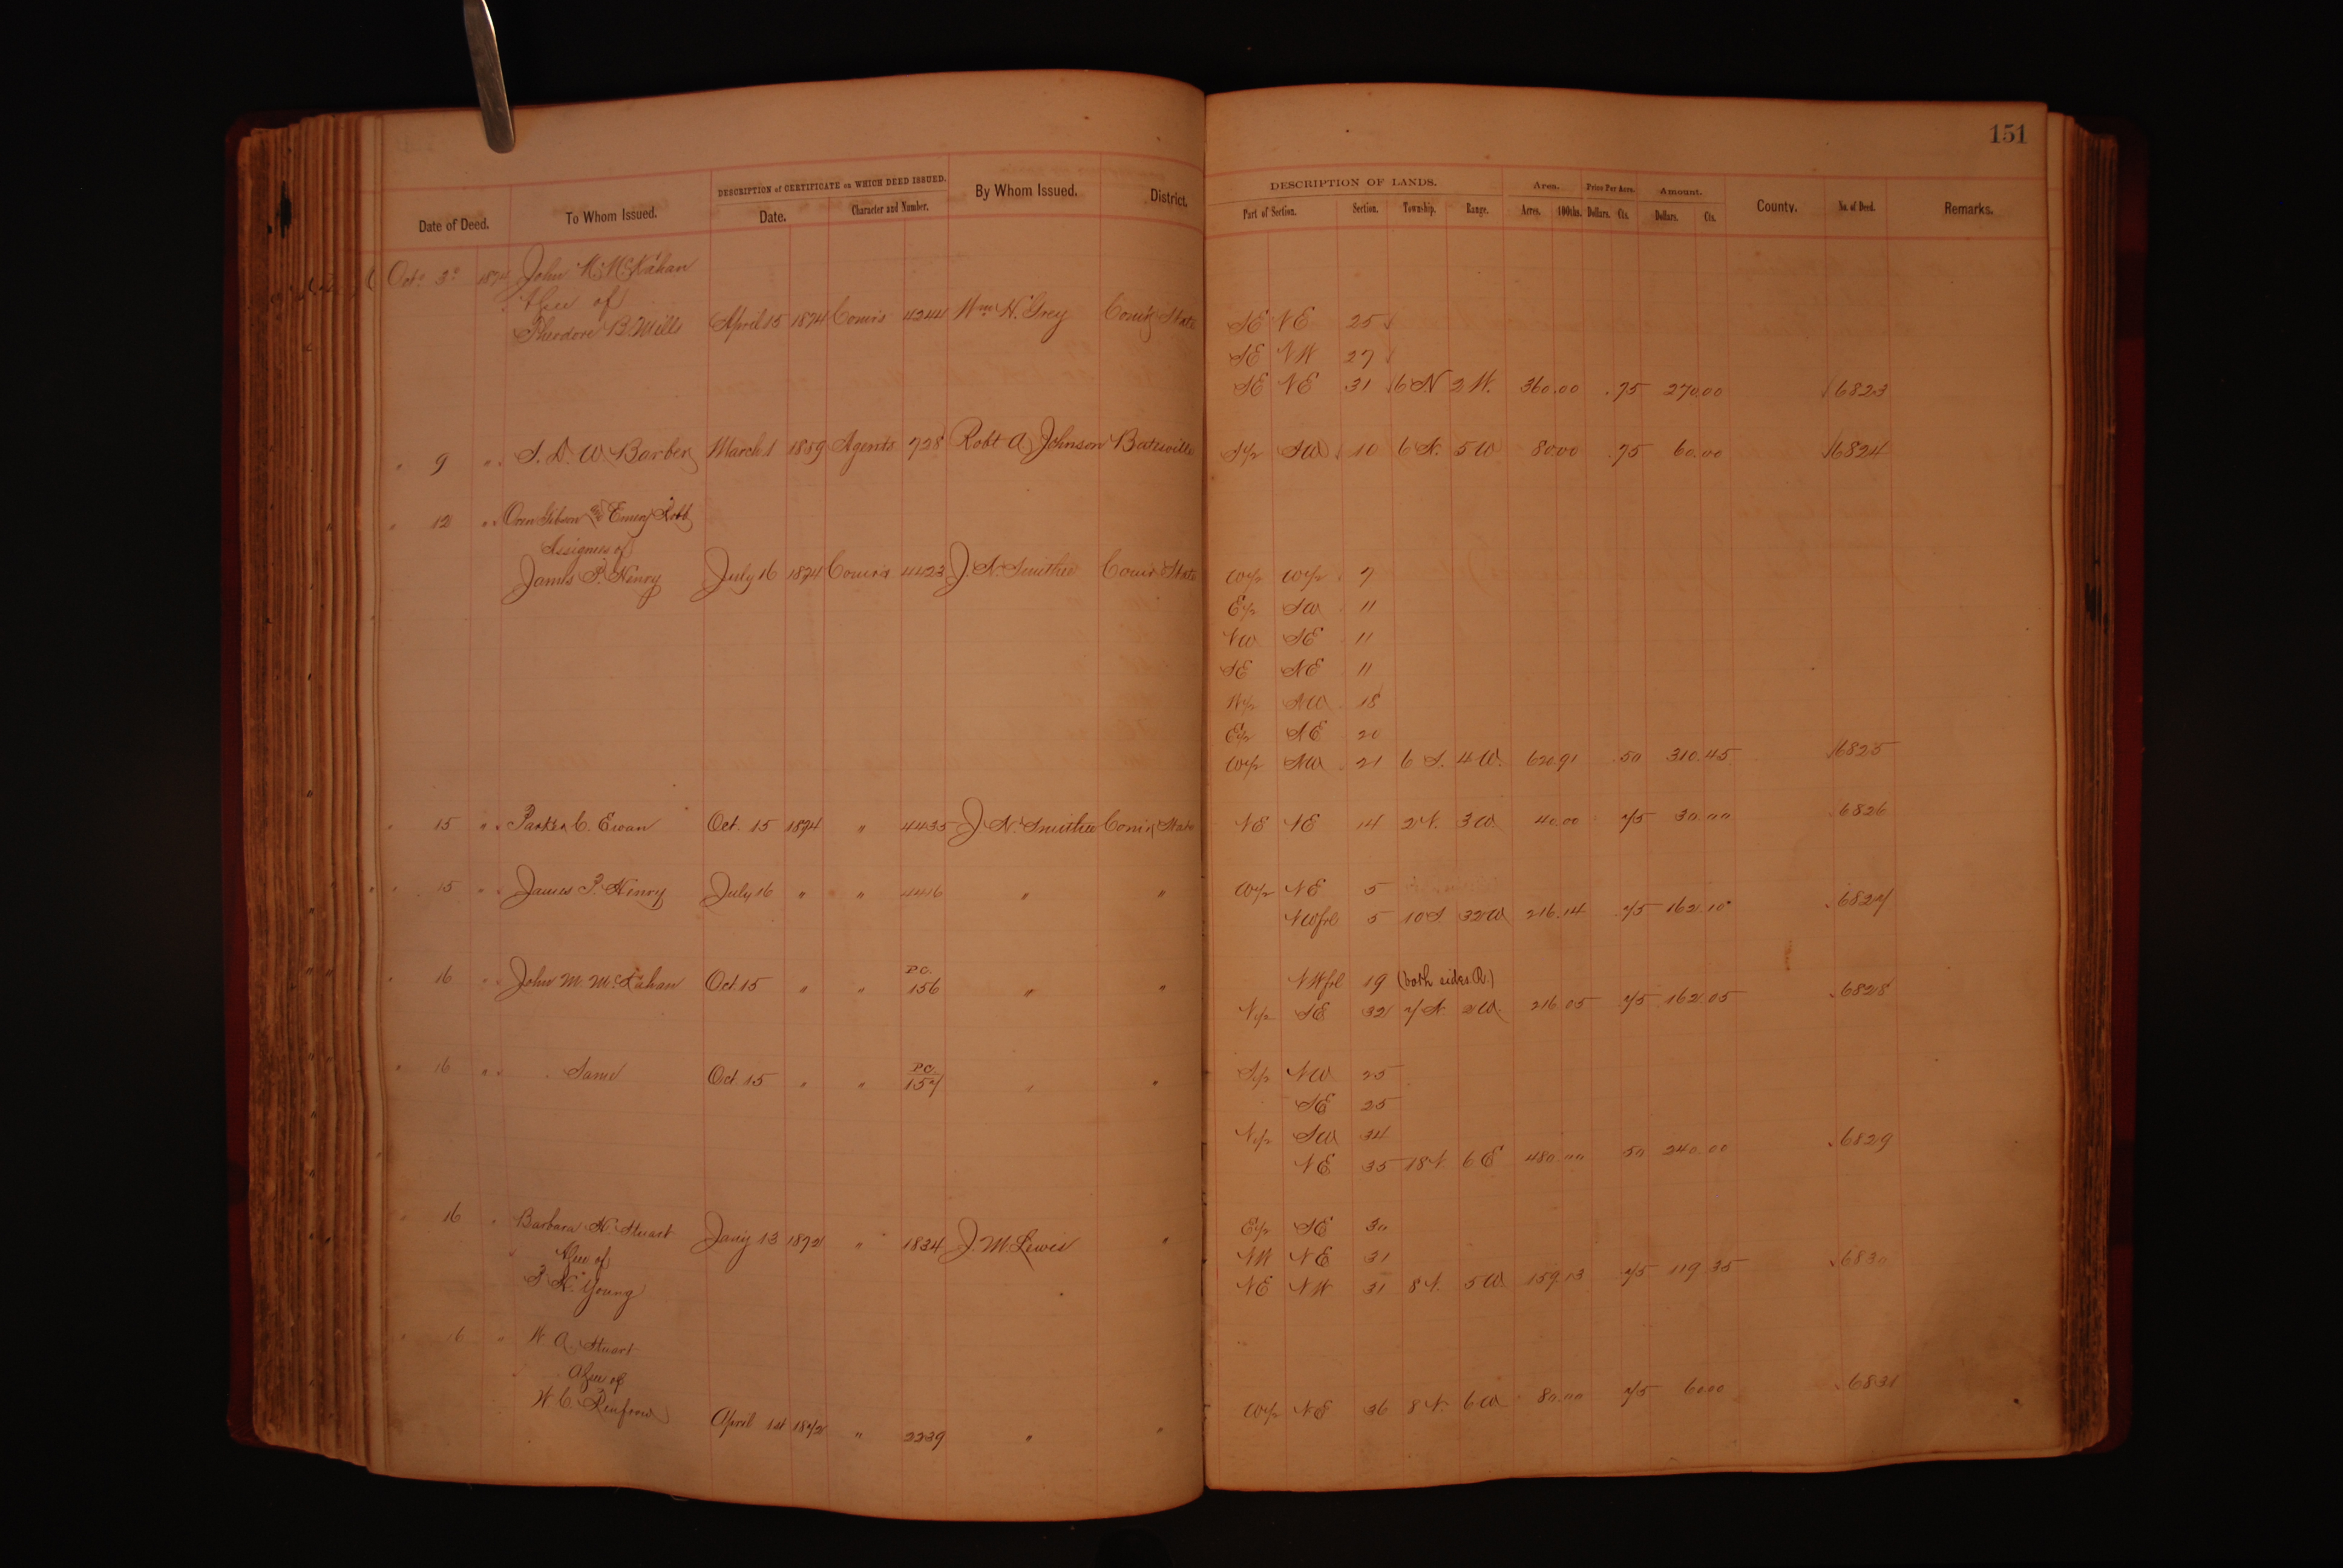 151
DESCRIPTION of CERTIFICATE on WHICH DEED ISSUED. DESCRIPTION OF LANDS. Area. Price Per Acre. Amount.
Date of Deed. To Whom Issued. Date. Character and Number. By Whom Issued. District. Part of Section. Section. Township. Range. Acres. 100ths. Dollars. Cts. Dollars. Cts. County. No. of Deed. Remarks.
Oct. 3 1874 John M. McKahan
of
Theodore B. Mills April 15 1874 Com'rs 4244 Wm H. Grey Com'r State SE NE 25
SE NW 27
SE NE 31 6 N 2 W. 360.00 .75 270.00 6823
" 9 " S. D. W. Barber March 1 1859 Agents 728 Robt A. Johnson Batesville S½ SW 10 6 N. 5 W 80.00 .75 60.00 6824
" 12 " Oren Gibson and Emery Robb
Assignees of
James P. Henry July 16 1874 Com'rs 4423 J. N. Smithee Com'r State W½ W½ 7
E½ SW 11
NW SE 11
SE NE 11
W½ NW 18
E½ NE 20
W½ NW 21 6 S. 4 W. 620.91 .50 310.45 6825
" 15 " Parker C. Ewan Oct. 15 1874 " 4435 J. N. Smithee Com'r State NE NE 14 2 N. 3 W 40.00 75 30.00 6826
" 15 " James P. Henry July 16 " " 4416 " " W½ NE 5
NWfrl 5 10 S. 32 W 216.14 .75 162.10 6827
" 16 " John M. McKahan Oct. 15 " " P.C. 156 " " NWfrl 19 (both sides R.)
N½ SE 32 7 N. 2 W. 216.05 75 162.05 6828
" 16 " Same Oct. 15 " " P.C. 157 " " S½ NW 25
SE 25
N½ SW 34
NE 35 18 N. 6 E 480.00 50 240.00 6829
" 16 " Barbara N. Stuart Jan'y 13 1872 " 1834 J. M. Lewis " E½ SE 30
of NW NE 31
Young NE NW 31 8 N. 5 W 159.13 75 119.35 6830
" 16 " W. A. Stuart
of
W. C. Renfrow April 14 1872 " 2239 " " W½ NE 36 8 N. 6 W 80.00 75 60.00 6831